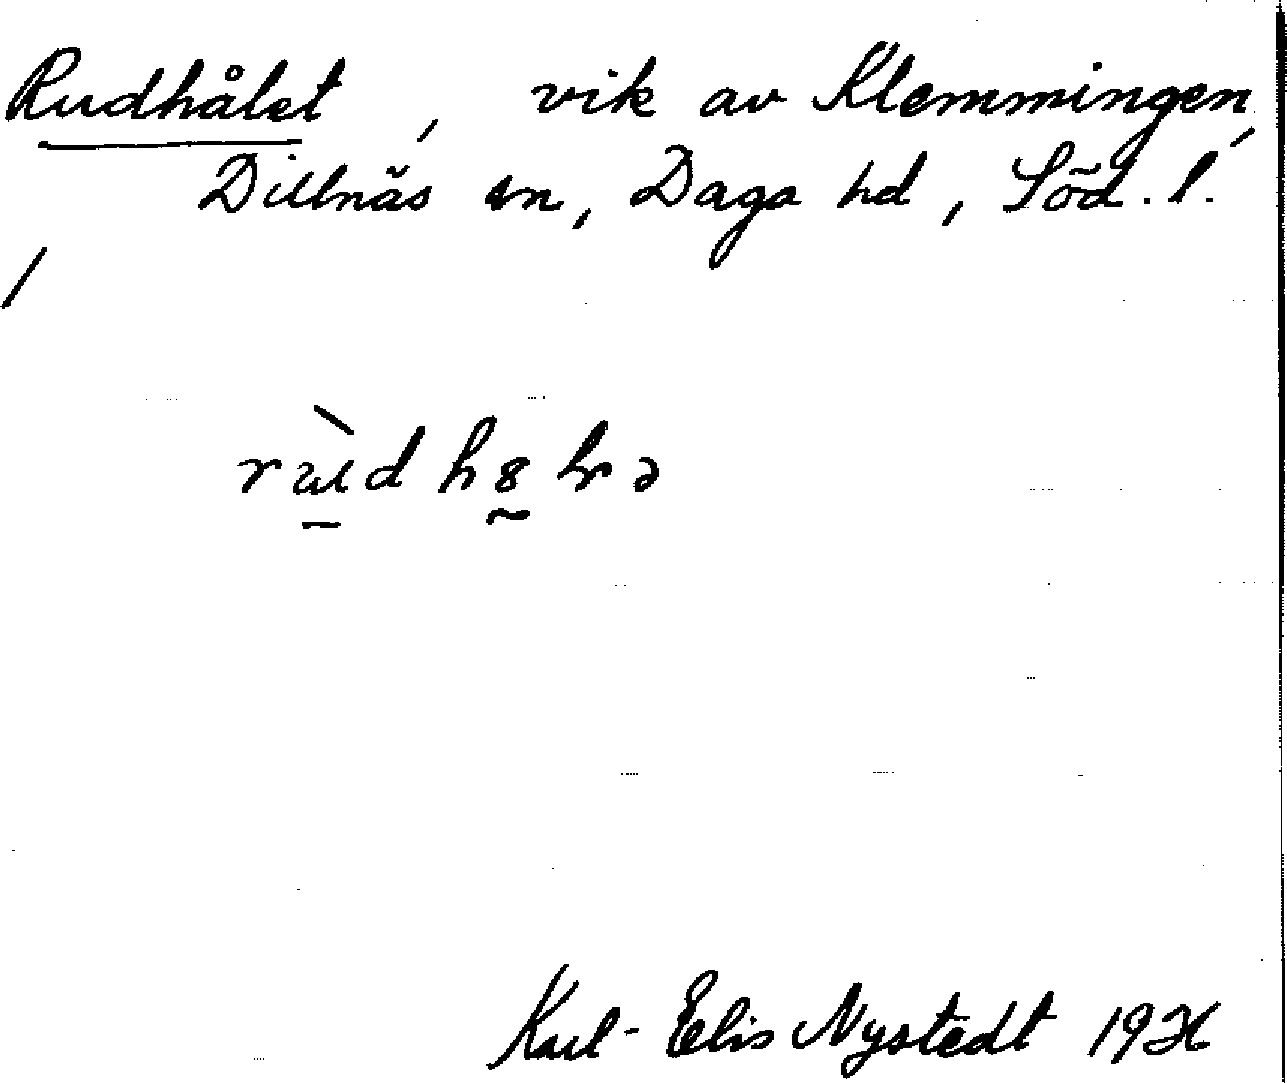 Rudhålet, vik av Klemmingen,
Dillnäs sn, Daga hd, Söd. l.
/
Karl-Elis Nystedt